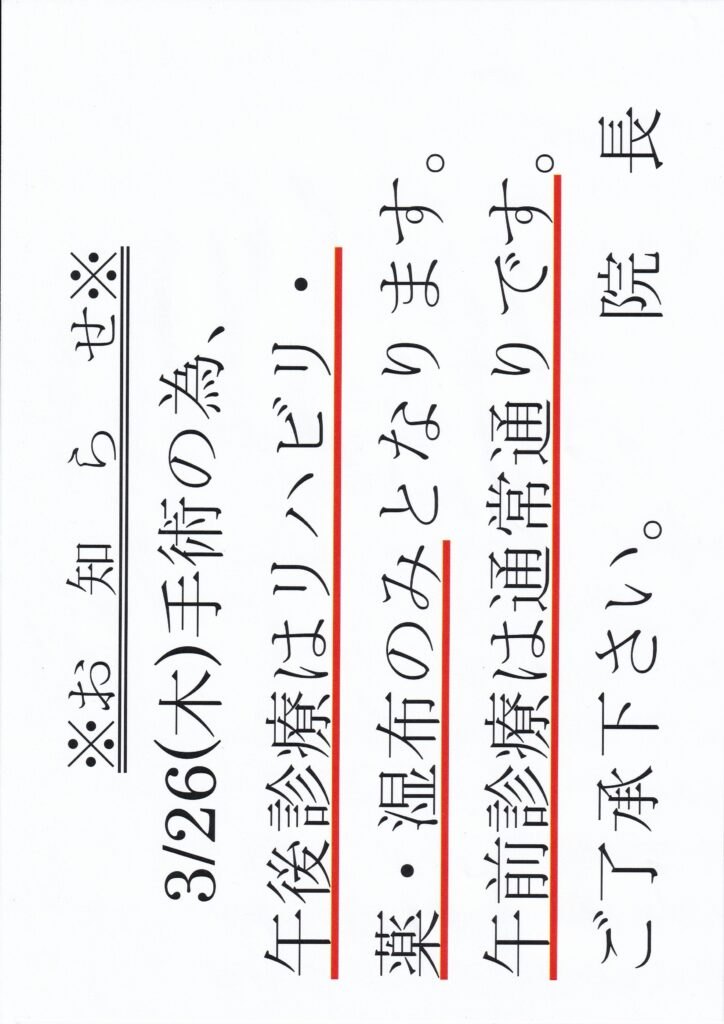 ※お知らせ※
3/26(木)手術の為、
午後診療はリハビリ・
薬・湿布のみとなります。
午前診療は通常通りです。
ご了承下さい。
院長